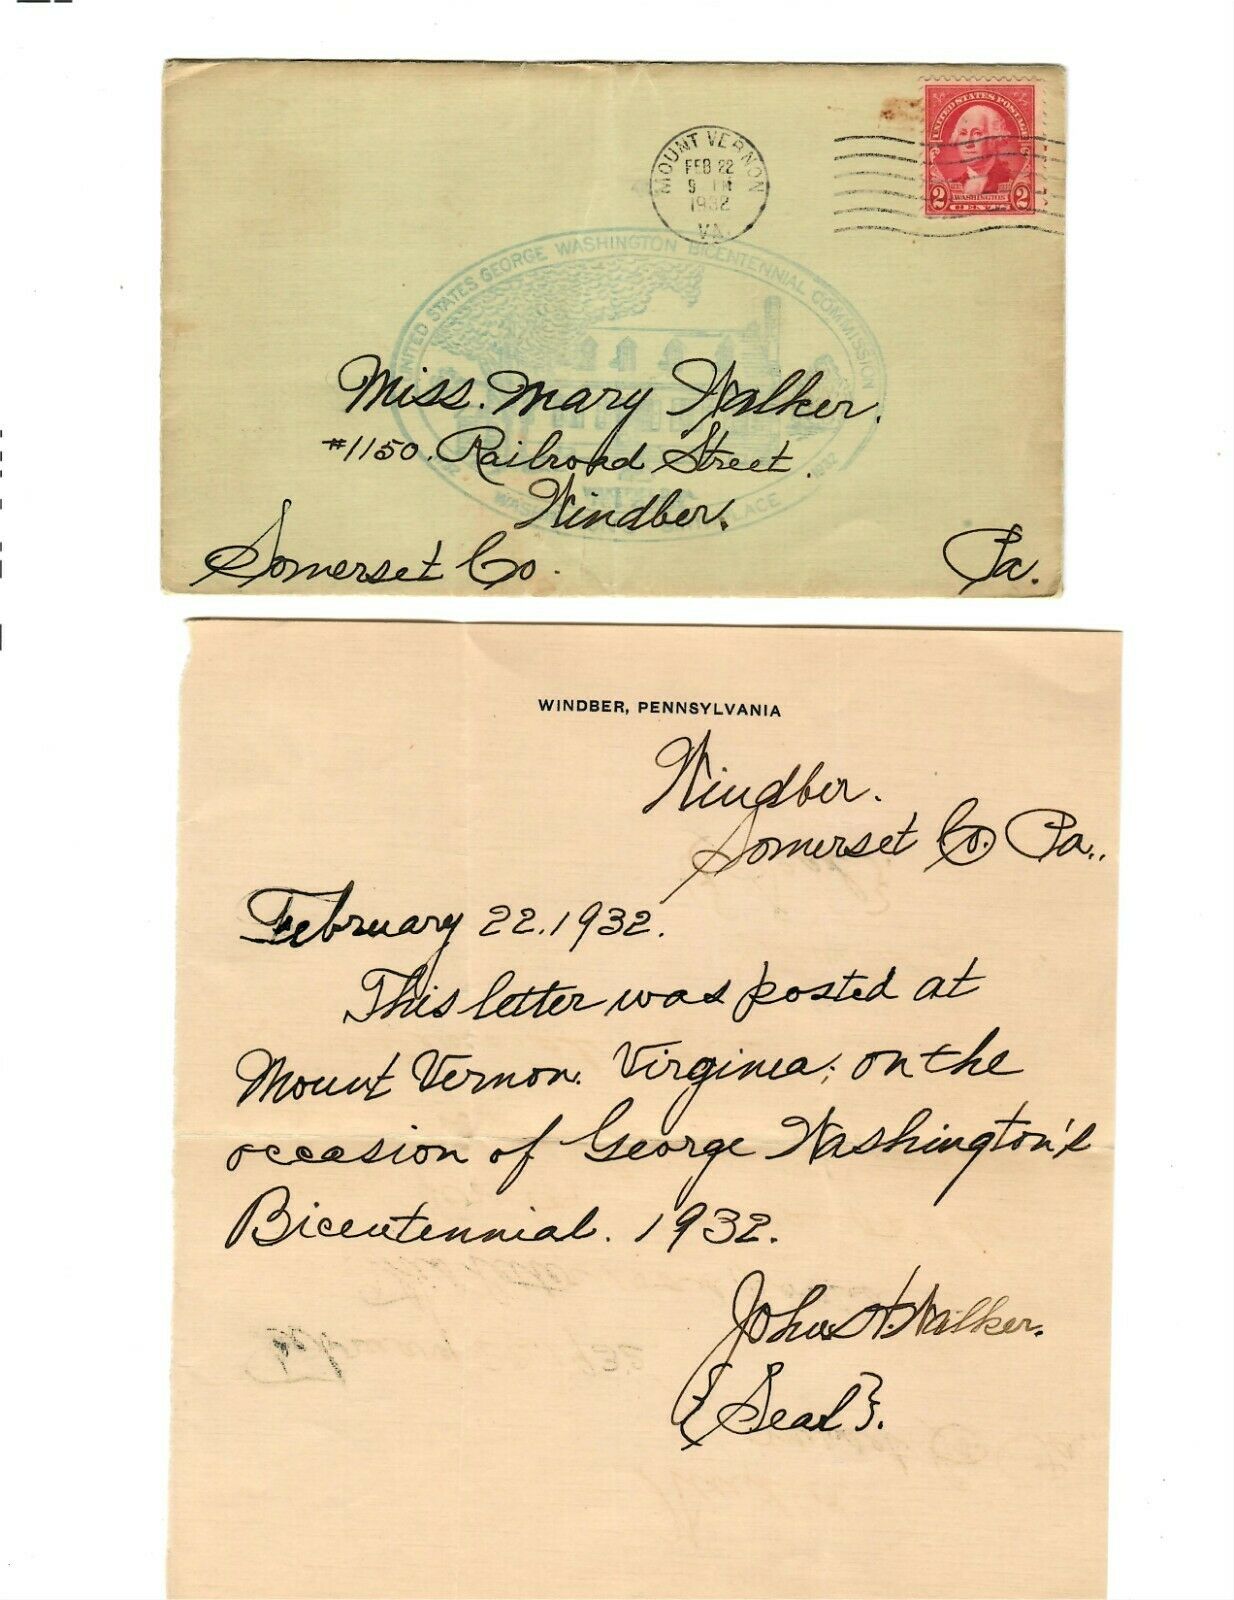 UNITED STATES POSTAGE
2 WASHINGTON 2
CENTS
MOUNT VERNON
FEB 22
9
1932
VA.
UNITED STATES GEORGE WASHINGTON BICENTENNIAL COMMISSION
1932
Miss. Mary Walker.
#1150. Railroad Street.
Windber.
Somerset Co. Pa.
WINDBER, PENNSYLVANIA
Windber.
Somerset Co. Pa..
February 22. 1932.
This letter was posted at
Mount Vernon. Virginia; on the
occasion of George Washington's
Bicentennial. 1932.
John H. Walker.
{Seal}.